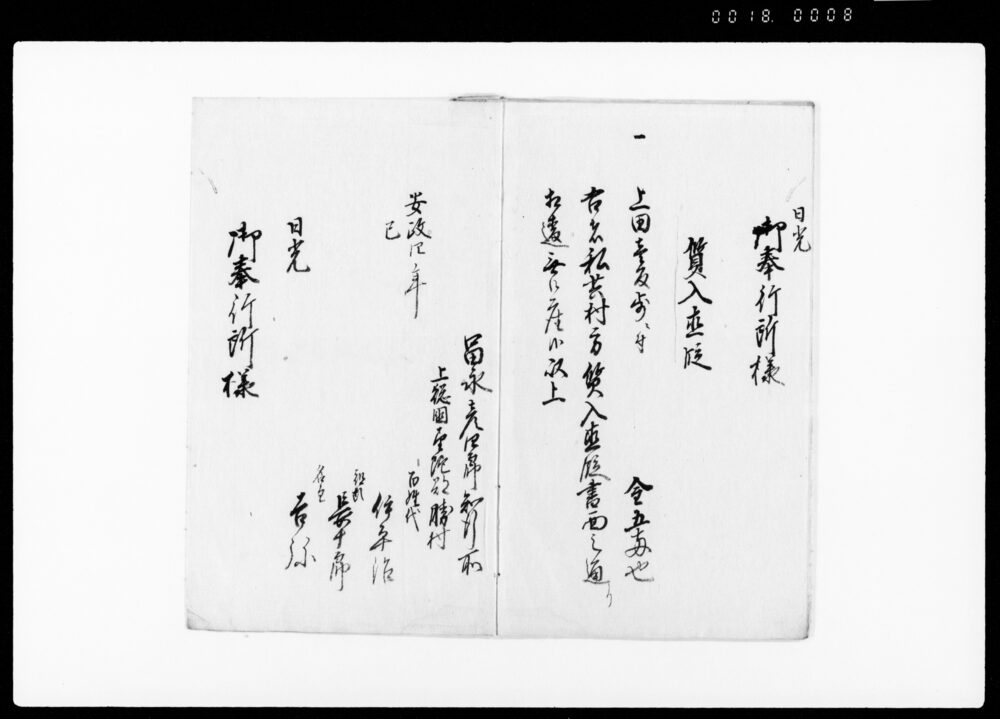 0018. 0008
日光
御奉行所様
質入直段
一
上田壱反歩ニ付
金五両也
右者私共村方質入直段書面之通り
相違無御座候以上
安政四年
巳
冨永
知行所
上総国望陀郡勝村
百姓代
伊平治
組頭
長十郎
名主
吉弥
日光
御奉行所様